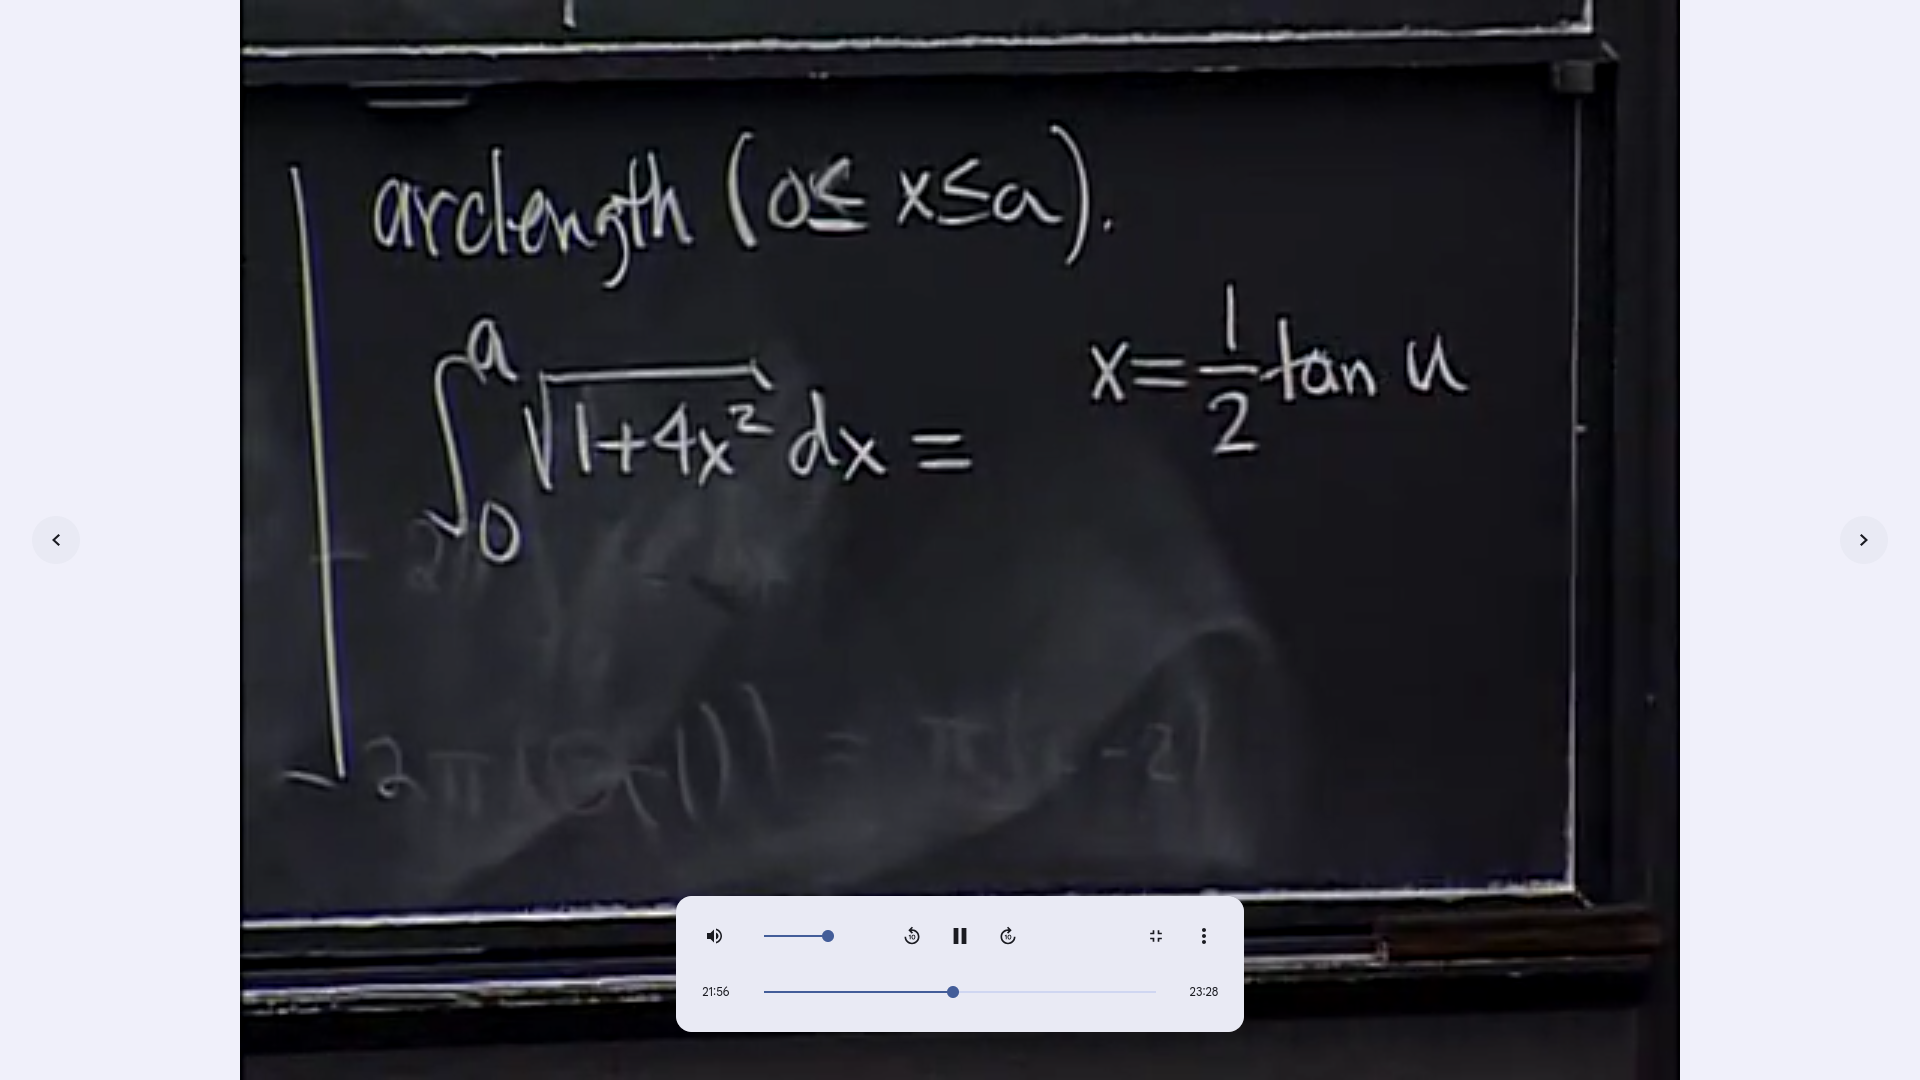 arclength (0≤ x≤a).
∫₀ᵃ √(1+4x²) dx =
x = 1/2 tan u
2π
= π
- 2)
21:56
23:28